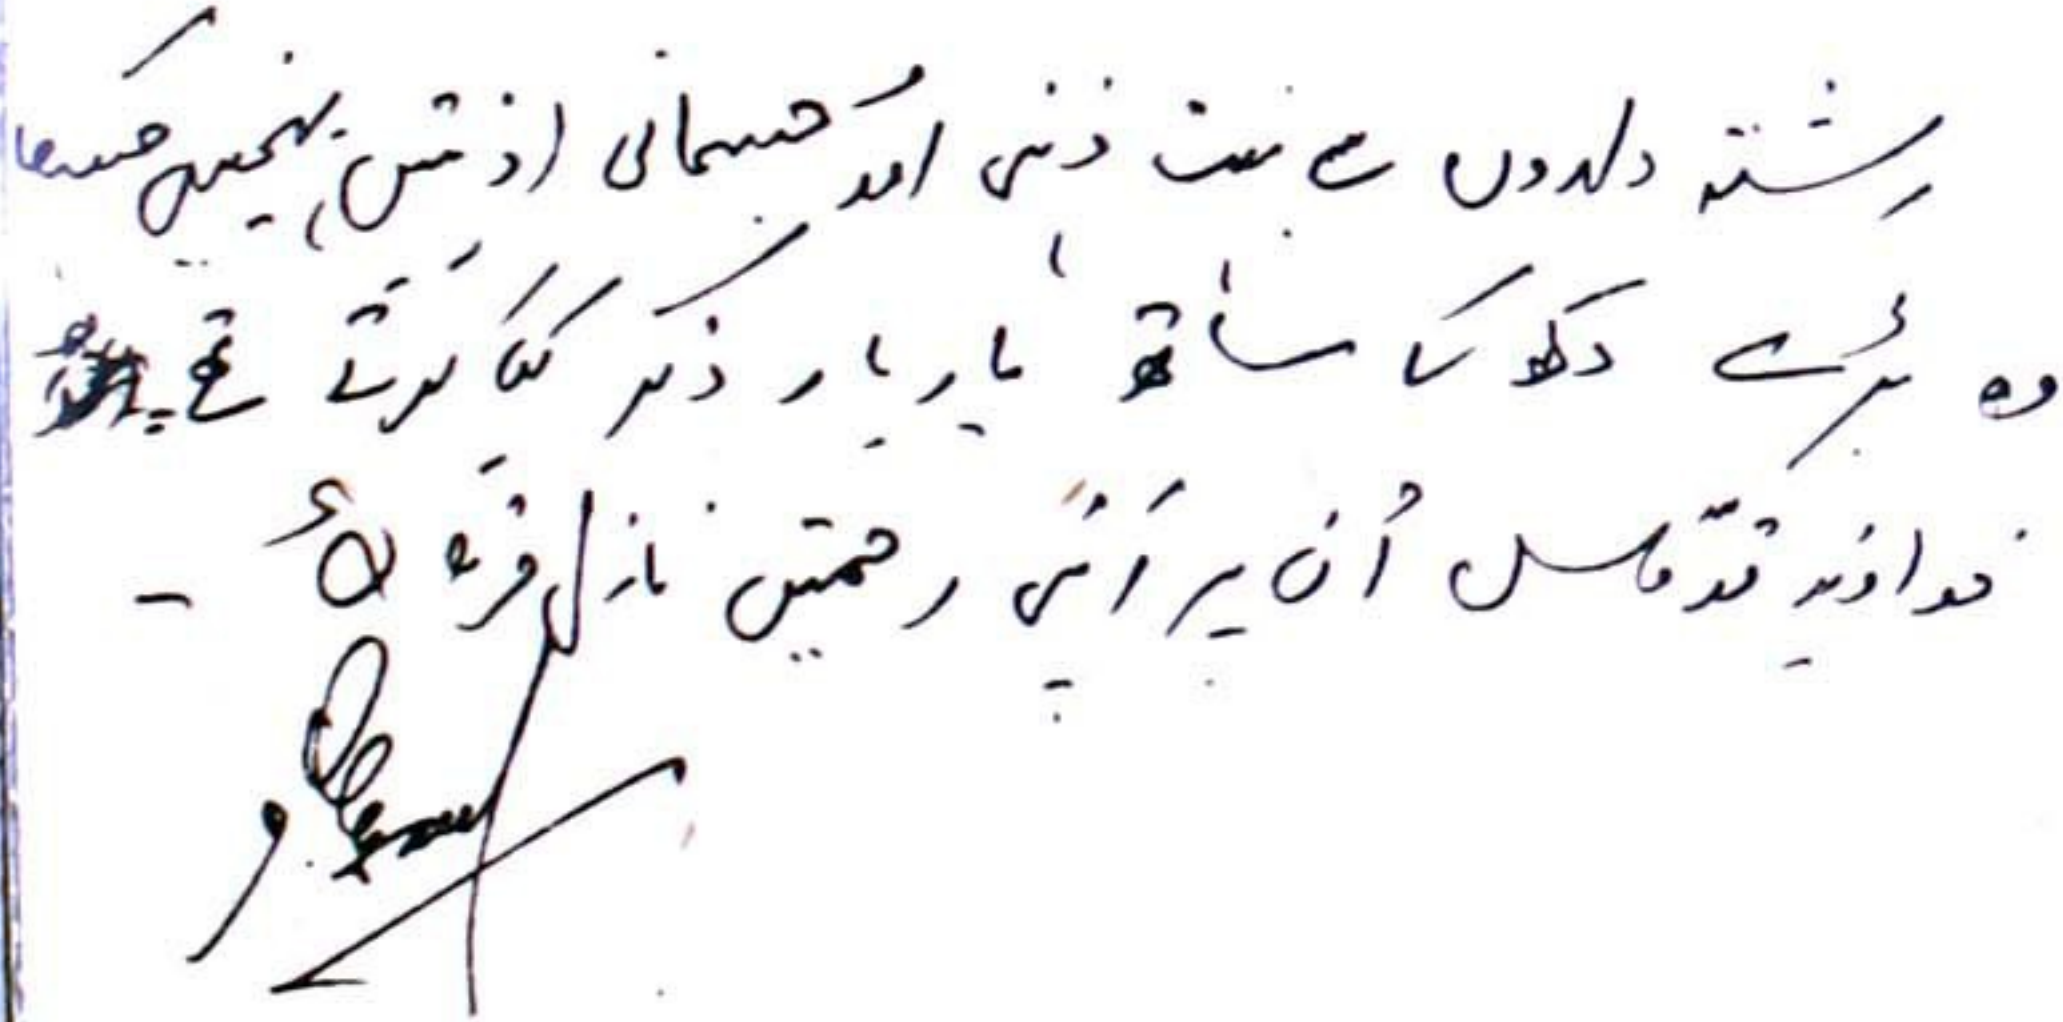 رشتہ داروں سے بہت ذہنی اور جسمانی اذیتیں پہنچیں جسکا
وہ بڑے دکھ کا ساتھ بار بار ذکر کیا کرتے تھے۔
خداوندِ قدّوس اُن پر اَپنی رحمتیں نازل فرمائے۔